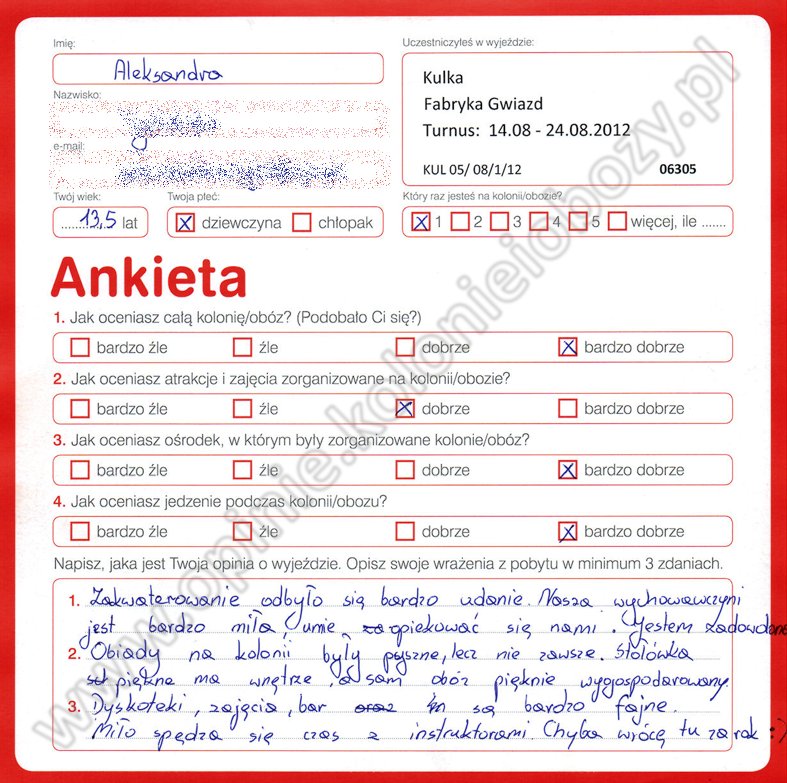 Imię:
Aleksandra
Uczestniczyłeś w wyjeździe:
Kulka
Fabryka Gwiazd
Turnus: 14.08 - 24.08.2012
KUL 05/ 08/1/12 06305
Nazwisko:
e-mail:
Twój wiek: Twoja płeć: Który raz jesteś na kolonii/obozie?
13,5 lat dziewczyna chłopak 1 2 3 4 5 więcej, ile .......
Ankieta
1. Jak oceniasz całą kolonię/obóz? (Podobało Ci się?)
bardzo źle źle dobrze bardzo dobrze
2. Jak oceniasz atrakcje i zajęcia zorganizowane na kolonii/obozie?
bardzo źle źle dobrze bardzo dobrze
3. Jak oceniasz ośrodek, w którym były zorganizowane kolonie/obóz?
bardzo źle źle dobrze bardzo dobrze
4. Jak oceniasz jedzenie podczas kolonii/obozu?
bardzo źle źle dobrze bardzo dobrze
Napisz, jaka jest Twoja opinia o wyjeździe. Opisz swoje wrażenia z pobytu w minimum 3 zdaniach.
1. Zakwaterowanie odbyło się bardzo udanie. Nasza wychowawczyni
jest bardzo miła, umie zaopiekować się nami. Jestem zadowolona
2. Obiady na kolonii były pyszne, lecz nie zawsze. Stołówka
piękne ma wnętrze, a sam obóz pięknie wygospodarowany.
3. Dyskoteki, zajęcia, bar oraz są bardzo fajne.
Miło spędza się czas z instruktorami. Chyba wrócę tu za rok :)
www.opinie.kolonieiobozy.pl